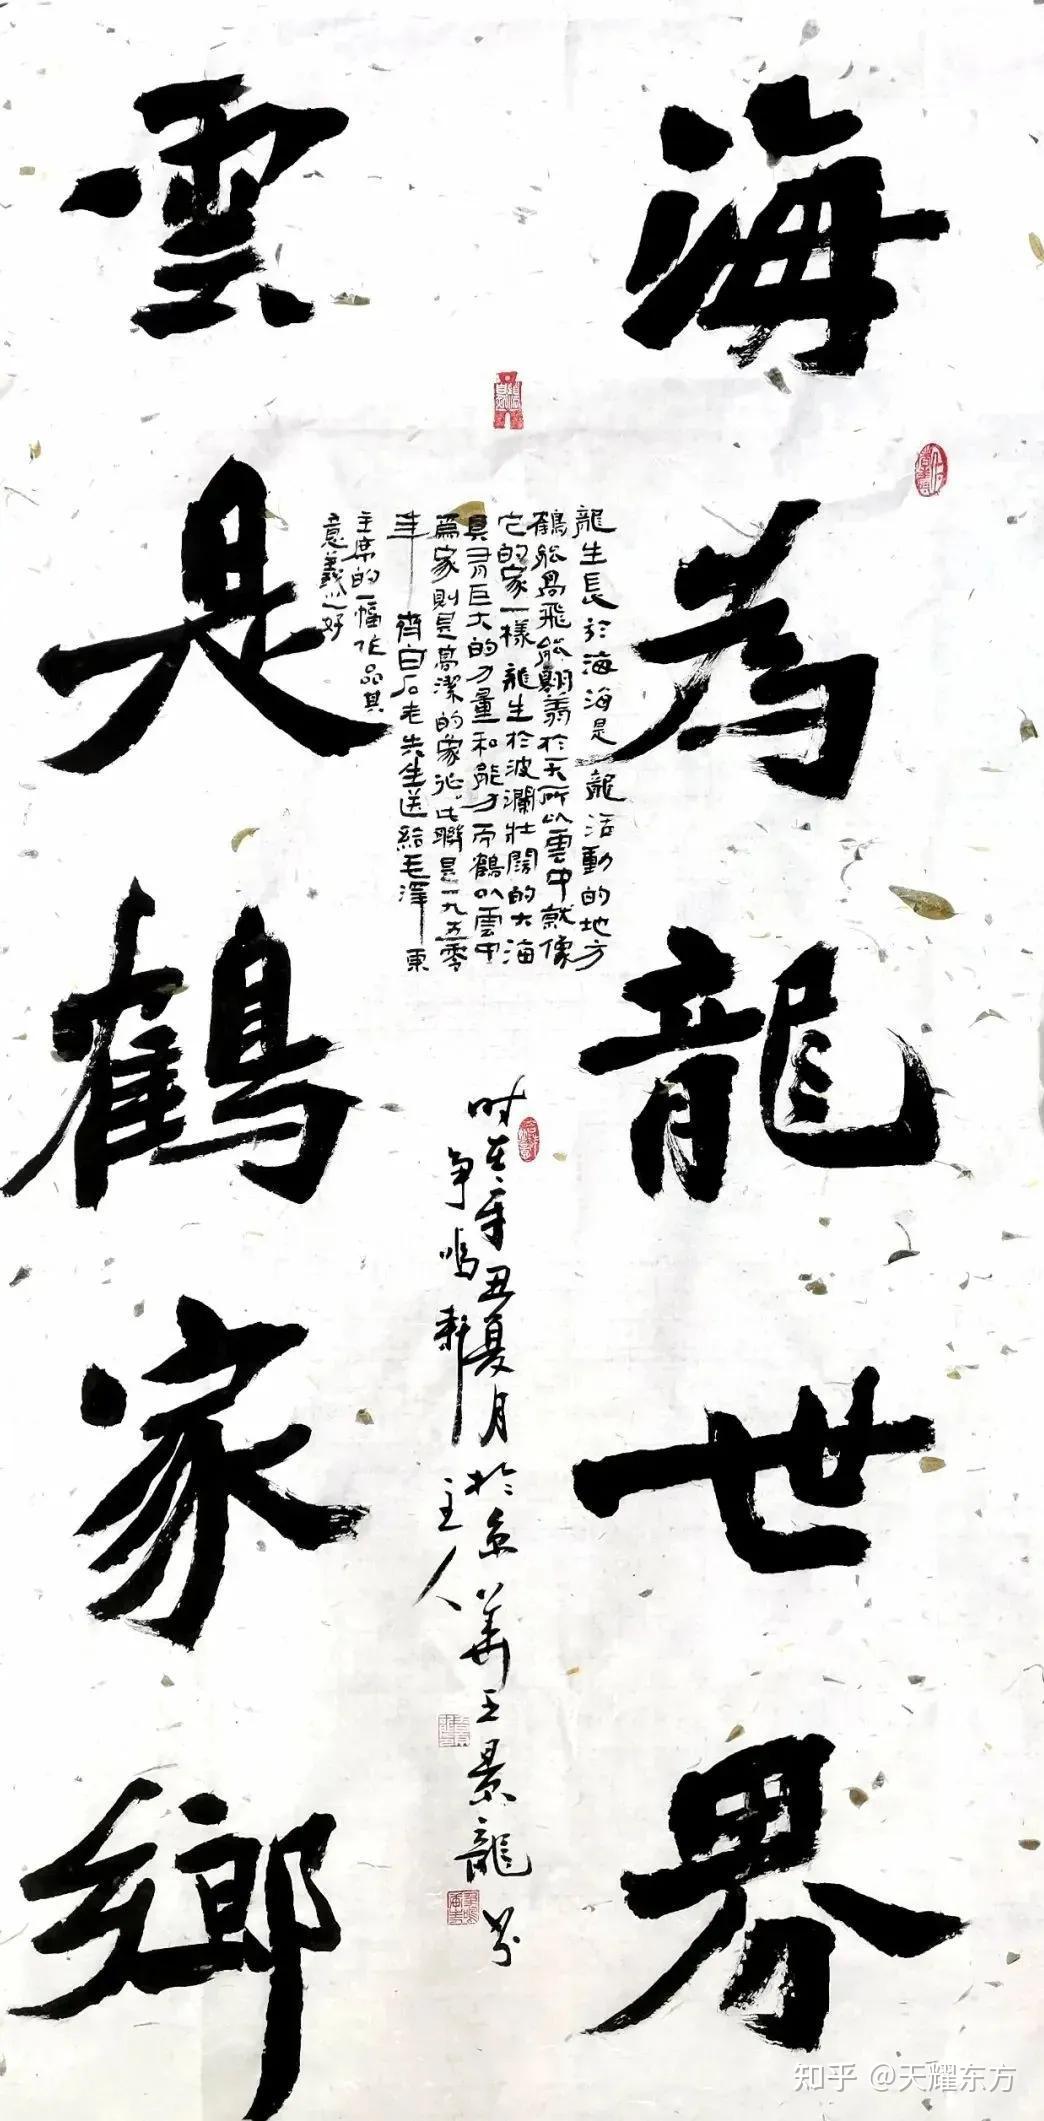 海為龍世界
雲是鶴家鄉
龍生長於海海是龍活動的地方
鶴能高飛能翱翔於天所以雲中就像
它的家一樣龍生於波瀾壯闊的大海
具有巨大的力量和能力而鶴以雲中
為家則是高潔的象徵。此聯是一九五零
年齊白石老先生送給毛澤東
主席的一幅作品其
意義好
时在辛丑夏月於京華王景龍書
争鳴軒主人
知乎 @天耀东方